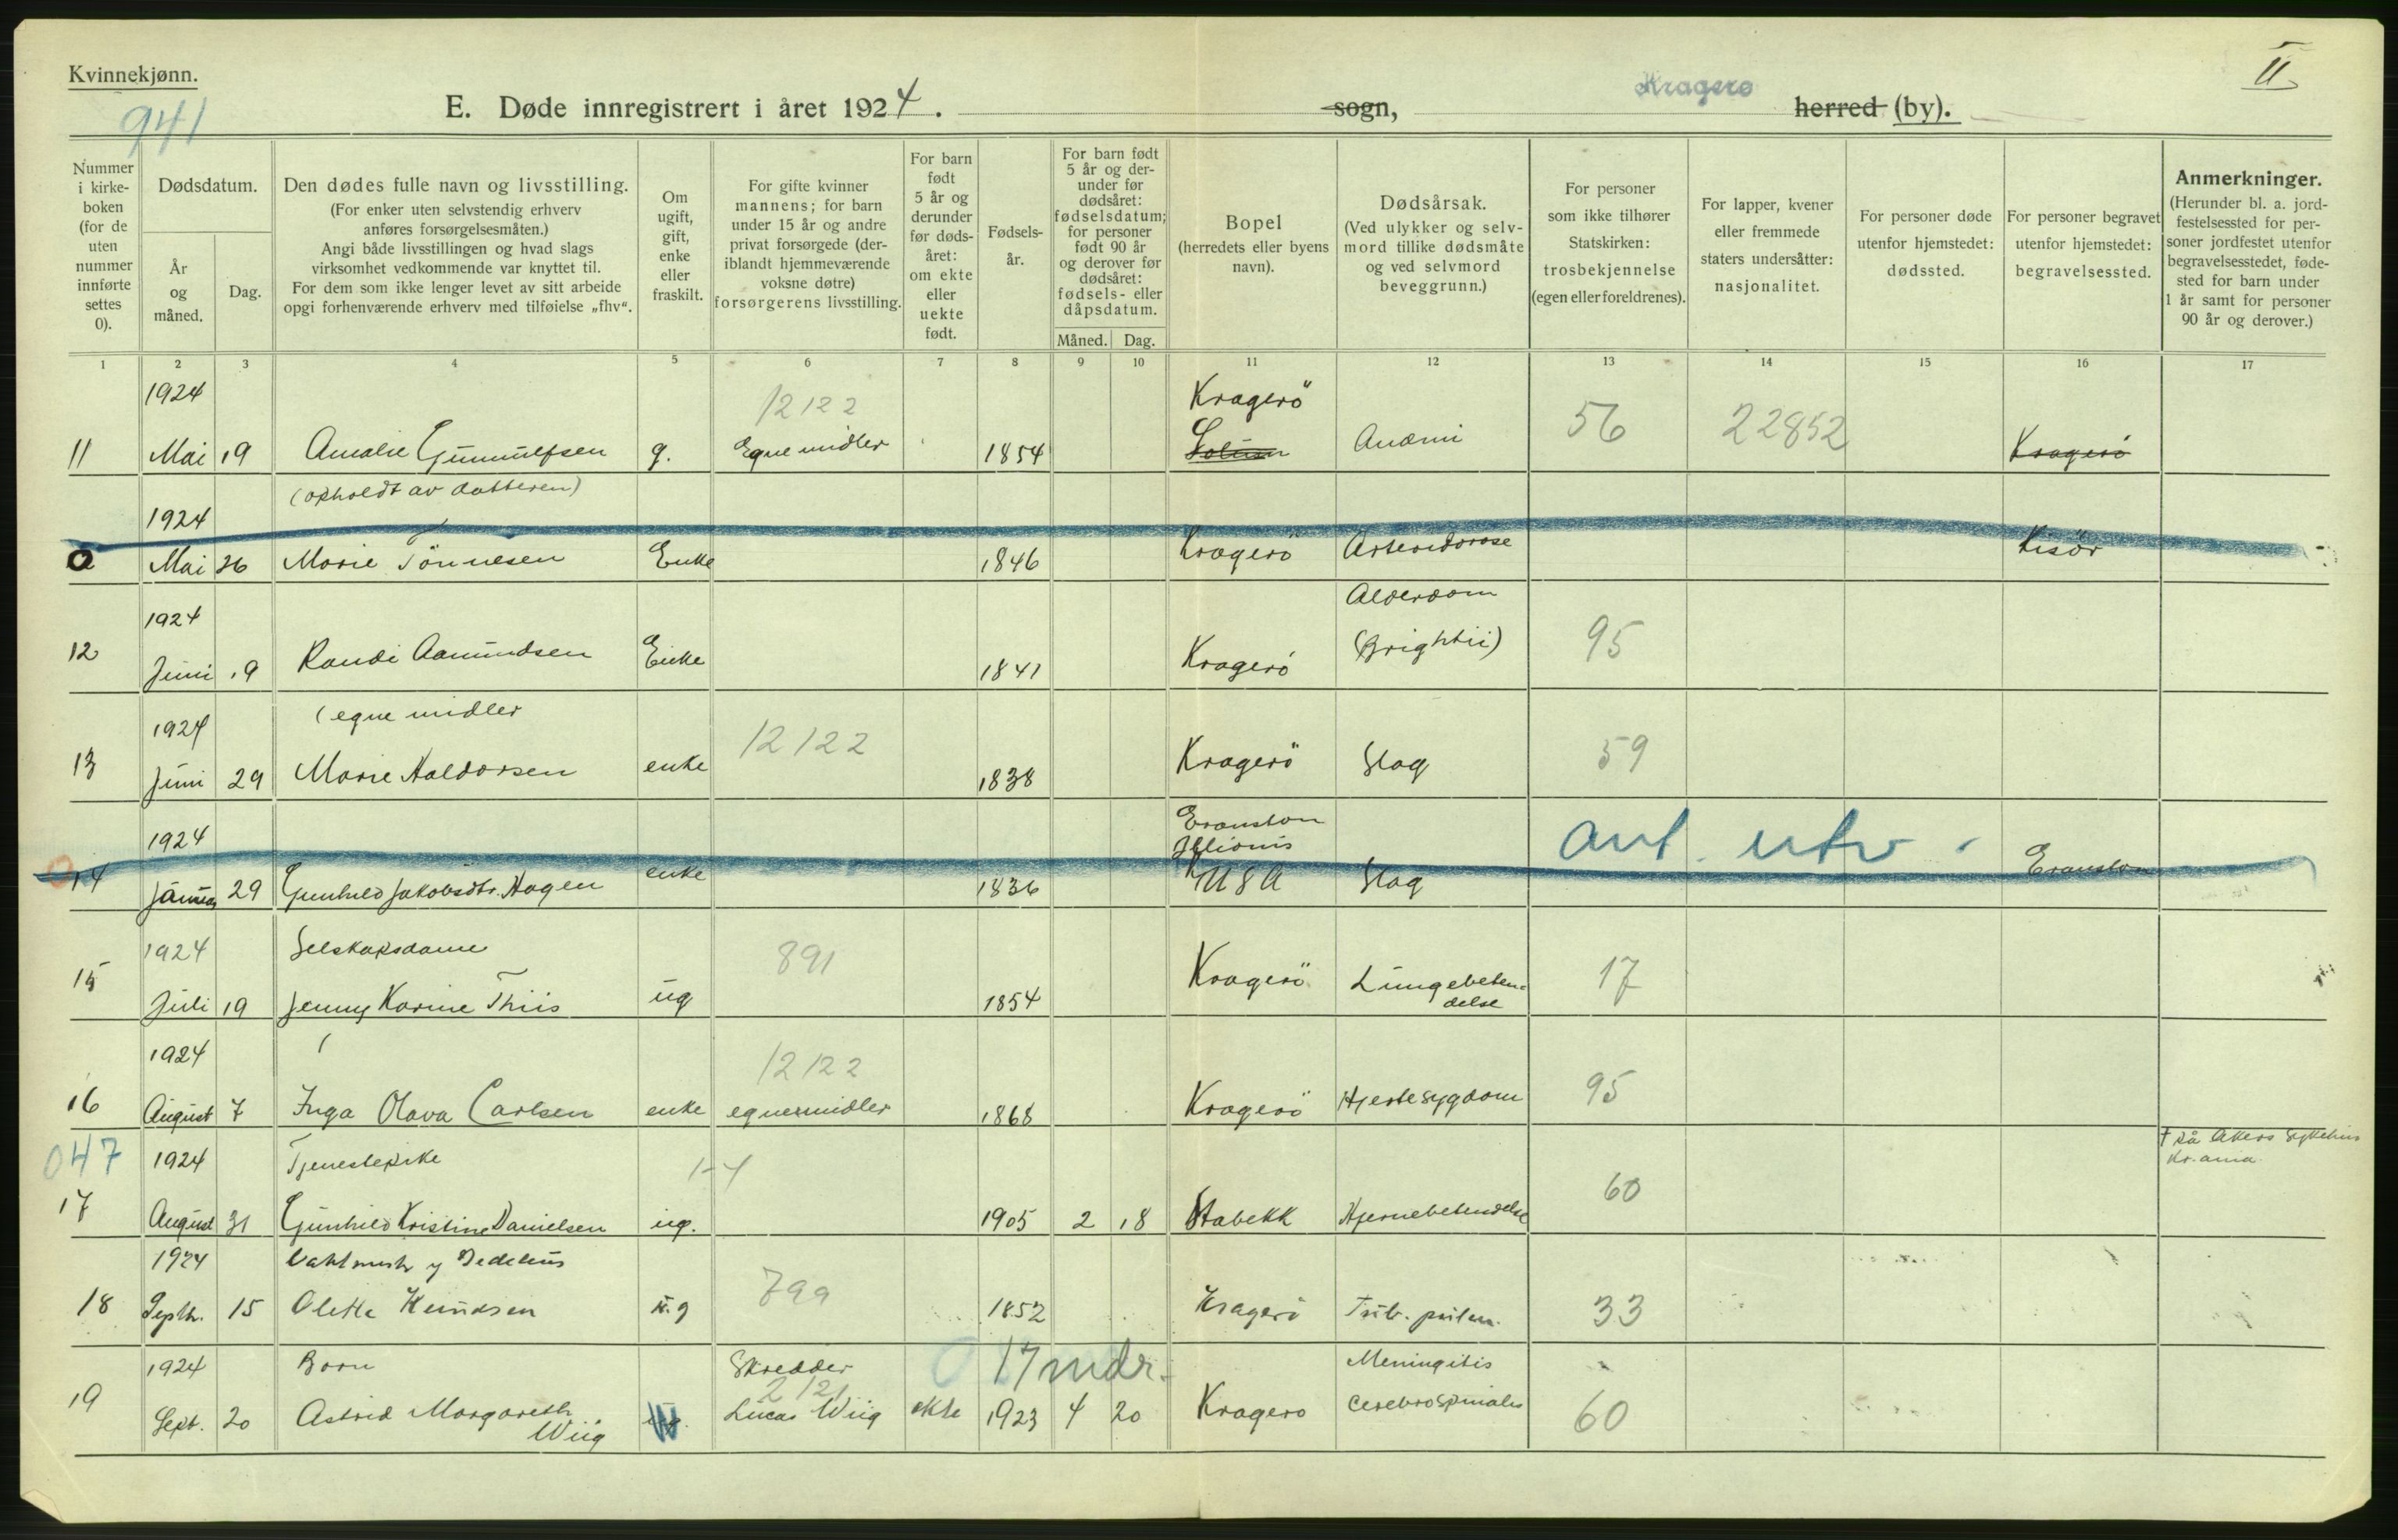 Kvinnekjønn.
941
E. Døde innregistrert i året 1924. sogn, Kragerø herred (by).
II
Nummer i kirkeboken (for de uten nummer innførte settes 0).
Dødsdatum.
År og måned.
Dag.
Den dødes fulle navn og livsstilling.
(For enker uten selvstendig erhverv anføres forsørgelsesmåten.)
Angi både livsstillingen og hvad slags virksomhet vedkommende var knyttet til.
For dem som ikke lenger levet av sitt arbeide opgi forhenværende erhverv med tilføielse „fhv“.
Om ugift, gift, enke eller fraskilt.
For gifte kvinner mannens; for barn under 15 år og andre privat forsørgede (deriblandt hjemmeværende voksne døtre) forsørgerens livsstilling.
For barn født 5 år og derunder før dødsåret: om ekte eller uekte født.
Fødselsår.
For barn født 5 år og derunder før dødsåret: fødselsdatum; for personer født 90 år og derover før dødsåret: fødsels- eller dåpsdatum.
Måned. Dag.
Bopel (herredets eller byens navn).
Dødsårsak.
(Ved ulykker og selvmord tillike dødsmåte og ved selvmord beveggrunn.)
For personer som ikke tilhører Statskirken: trosbekjennelse (egen eller foreldrenes).
For lapper, kvener eller fremmede staters undersåtter: nasjonalitet.
For personer døde utenfor hjemstedet: dødssted.
For personer begravet utenfor hjemstedet: begravelsessted.
Anmerkninger.
(Herunder bl. a. jordfestelsessted for personer jordfestet utenfor begravelsesstedet, fødested for barn under 1 år samt for personer 90 år og derover.)
1 2 3 4 5 6 7 8 9 10 11 12 13 14 15 16 17
1924 12122 Kragerö
11 Mai 19 Amalie Gunnulfsen g. Egne midler 1854 Solum Anæmi 56 22852 Kragerö
(opholdt av datteren)
1924
0 Mai 26 Marie Tönnesen Enke 1846 Kragerö Risör
1924 Alderdom
12 Juni 19 Randi Aamundsen Enke 1841 Kragerö (Brightii) 95
(egne midler
1924 12122
13 Juni 29 Marie Haldorsen enke 1838 Kragerö Slag 59
1924 Evanston Illionis ant. utv.
14 29 Gunhild Jakobsdtr. Hagen enke 1836 USA Slag Evanston
1924 Selskapsdame 891
15 Juli 19 Jenny Karine Thiis ug 1854 Kragerö Lungebeten= delse 17
1924 12122
16 August 7 Inga Olava Carlsen enke egnemidler 1868 Kragerö Hjertesygdom 95
047 1924 Tjenestepike 1-4 † på Akers Sykehus Kr.ania.
17 August 31 Gunhild Kristine Danielsen ug. 1905 2 18 Stabekk Hjernebetendelse 60
1924
18 Septb. 15 Oletta Knudsen u.g 799 1852 Kragerö 33
1924 Barn Skredder 0 17 mdr. Meningitis
2121
19 Sept. 20 Astrid Margareth Wiig Lucas Wiig ekte 1923 4 20 Kragero Cerebrospinalis 60